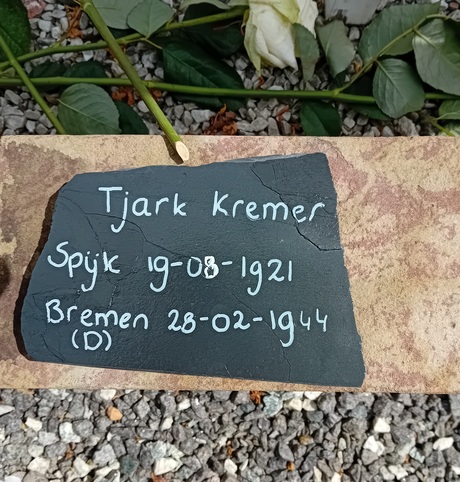 Tjark Kremer
Spijk 19-08-1921
Bremen 28-02-1944
(D)